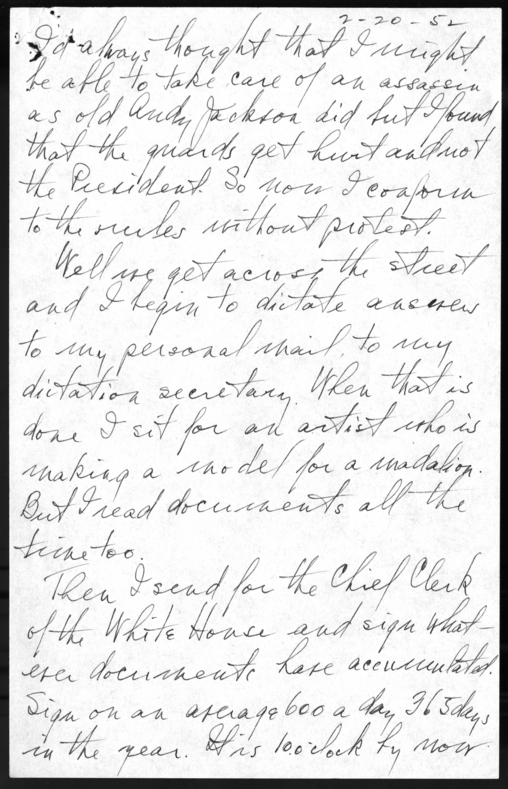 2-20-52
I'd always thought that I might
be able to take care of an assassin
as old Andy Jackson did but I found
that the guards get hurt and not
the President. So now I conform
to the rules without protest.
Well we get across the street
and I begin to dictate answers
to my personal mail, to my
dictation secretary. When that is
done I sit for an artist who is
making a model for a madalion.
But I read documents all the
time too.
Then I send for the Chief Clerk
of the White House and sign what-
ever documents have accumulated.
Sign on an average 600 a day 365 days
in the year. It is 10 o'clock by now